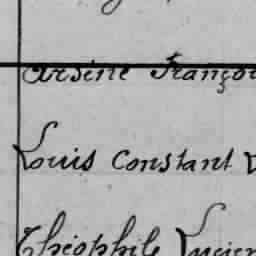 Arsène Françoi
Louis Constant V
Théophile Lucien